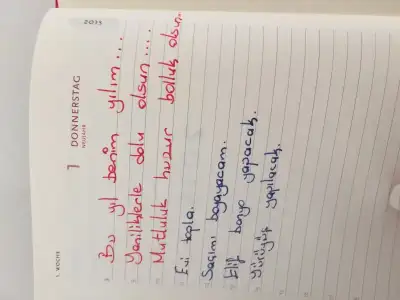 2015
1 DONNERSTAG
NEUJAHR
1. WOCHE
Bu yıl benim yılım...
Yeniliklerle dolu olsun...
Mutluluk huzur bolluk olsun.
Evi topla.
Saçımı boyayacam.
Elif banyo yapacak.
Yürüyüş yapılacak.